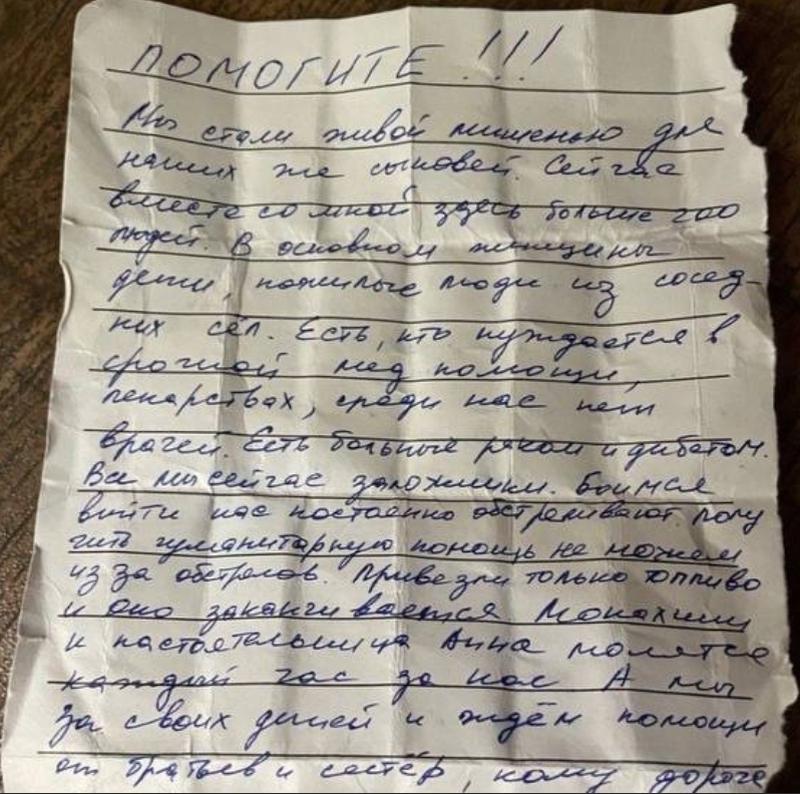 ПОМОГИТЕ!!!
Мы стали живой мишенью для
наших же сыновей. Сейчас
вместе со мной здесь больше 200
людей. В основном женщины
дети, пожилые люди из сосед-
них сёл. Есть, кто нуждается в
срочной мед помощи,
лекарствах, среди нас нет
врачей. Есть больные раком и дибетом.
Все мы сейчас заложники. Боимся
выйти нас постоенно обстреливают полу
чить гуманитарную помощь не можем
из за обстрелов. Привезли только топливо
и оно заканчивается Монахини
и настоятельница Анна молятся
каждый час за нас А мы
за своих детей и ждём помощи
от братьев и сестёр, кому дороги